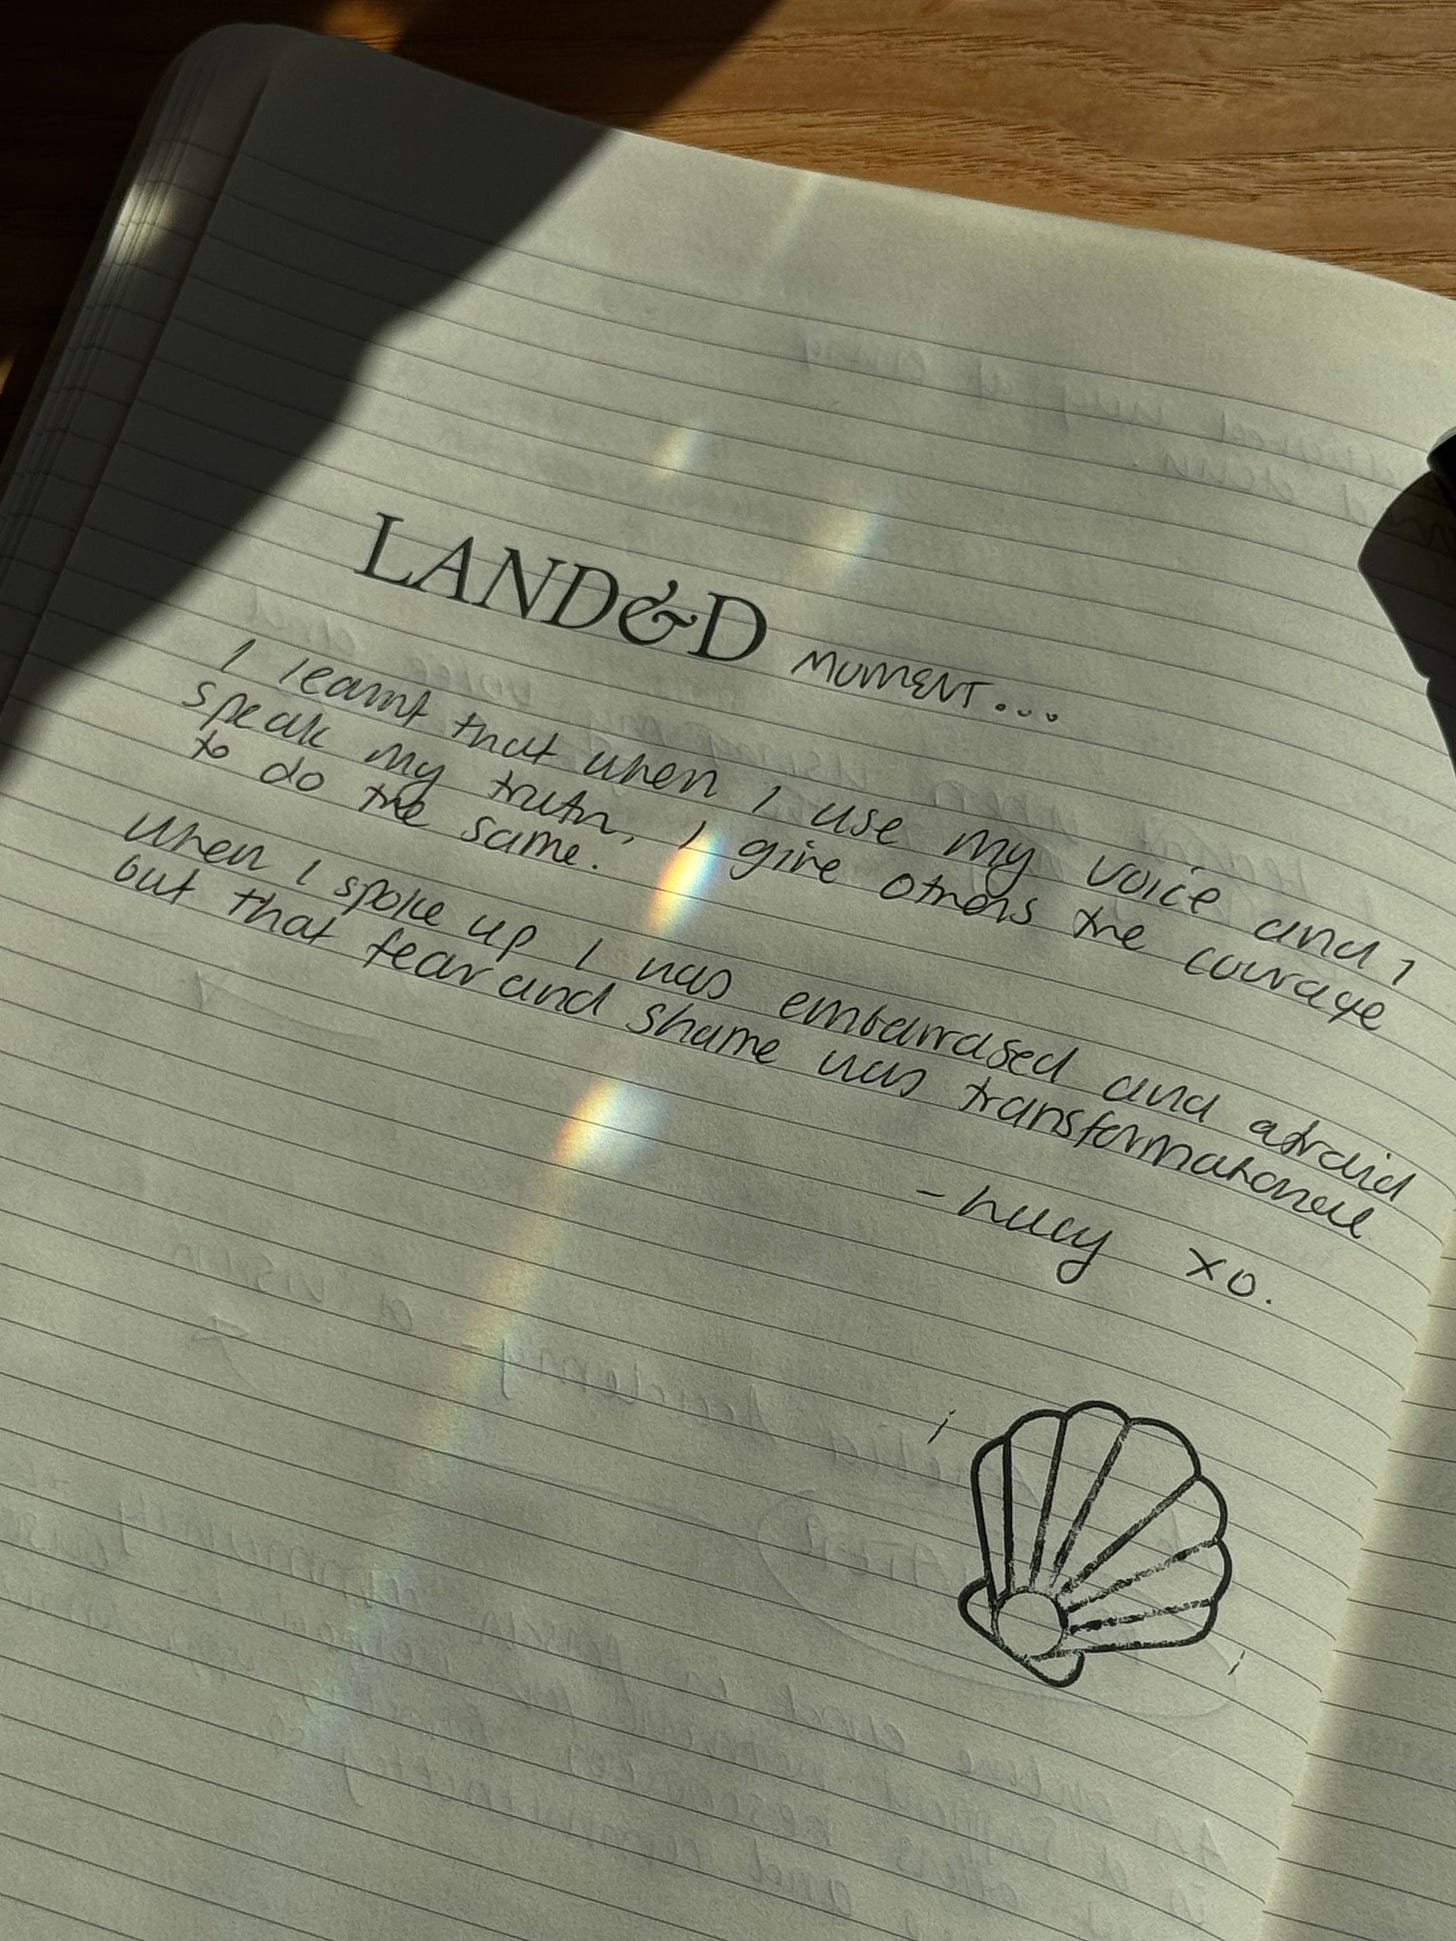 LAND&D MOMENT...
I learnt that when I use my voice and I
speak my truth, I give others the courage
to do the same.
When I spoke up I was embarrased and afraid
but that fear and shame was transformational
- Lucy xo.